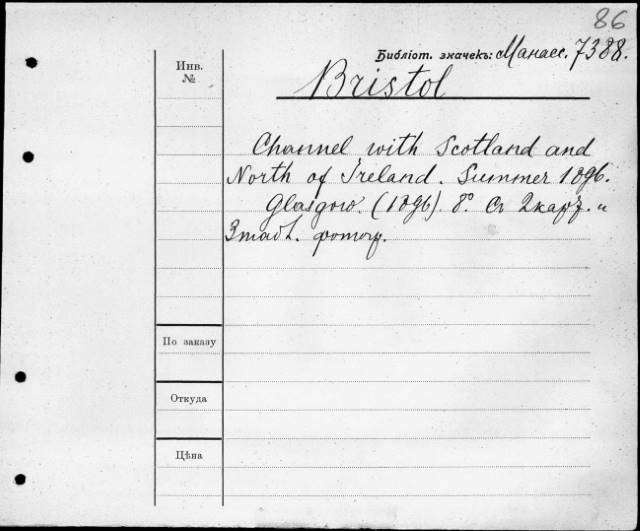 86
Библіот. значекъ: Манасс. 7388.
Инв. №
Bristol
Channel with Scotland and
North of Ireland. Summer 1896.
Glasgow. (1896). 8°. Съ 2 карт. и
3 табл. фотогр.
По заказу
Откуда
Цѣна